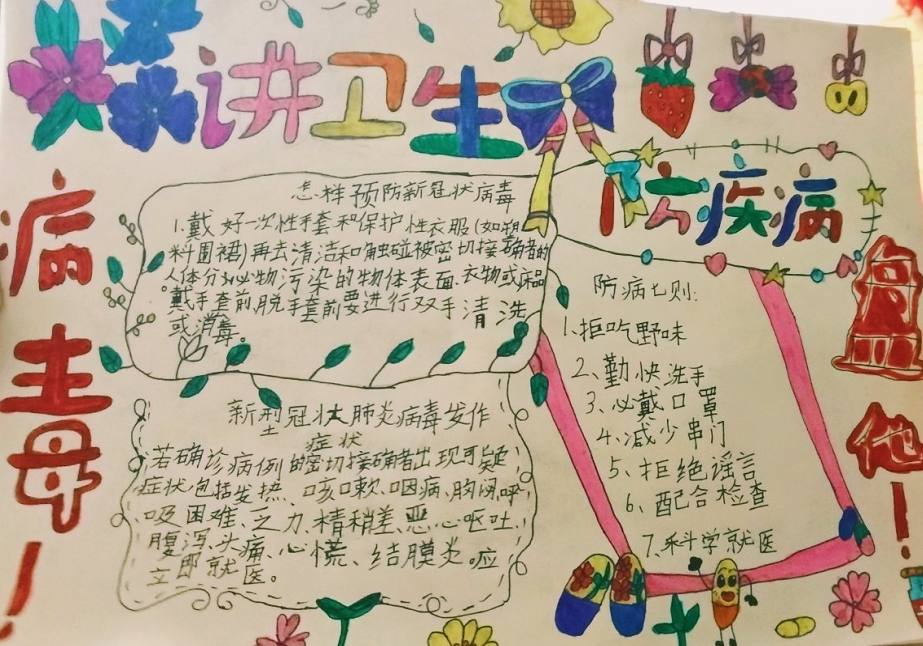 讲卫生
防疾病
病毒!
他!
怎样预防新冠状病毒
1.戴好一次性手套和保护性衣服(如塑
料围裙)再去清洁和触碰被密切接确者的
人体分泌物污染的物体表面、衣物或床品
。戴手套前、脱手套前要进行双手清洗
或消毒。
新型冠状肺炎病毒发作
症状
若确诊病例的密切接确者出现可疑
症状,包括发热、咳嗽、咽痛、胸闷、呼
吸困难、乏力、精稍差、恶心呕吐、
腹泻、头痛、心慌、结膜炎。应
立即就医。
防病七则:
1、拒吃野味
2、勤快洗手
3、必戴口罩
4、减少串门
5、拒绝谣言
6、配合检查
7、科学就医